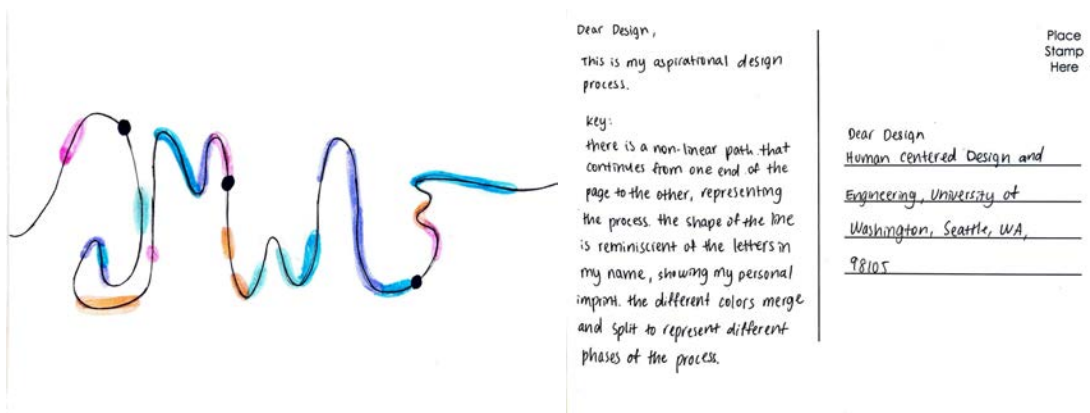 Dear Design,
This is my aspirational design
process.
key:
there is a non-linear path that
continues from one end of the
page to the other, representing
the process. the shape of the line
is reminiscient of the letters in
my name, showing my personal
imprint. the different colors merge
and split to represent different
phases of the process.
Place
Stamp
Here
Dear Design
Human centered Design and
Engineering, University of
Washington, Seattle, WA,
98105